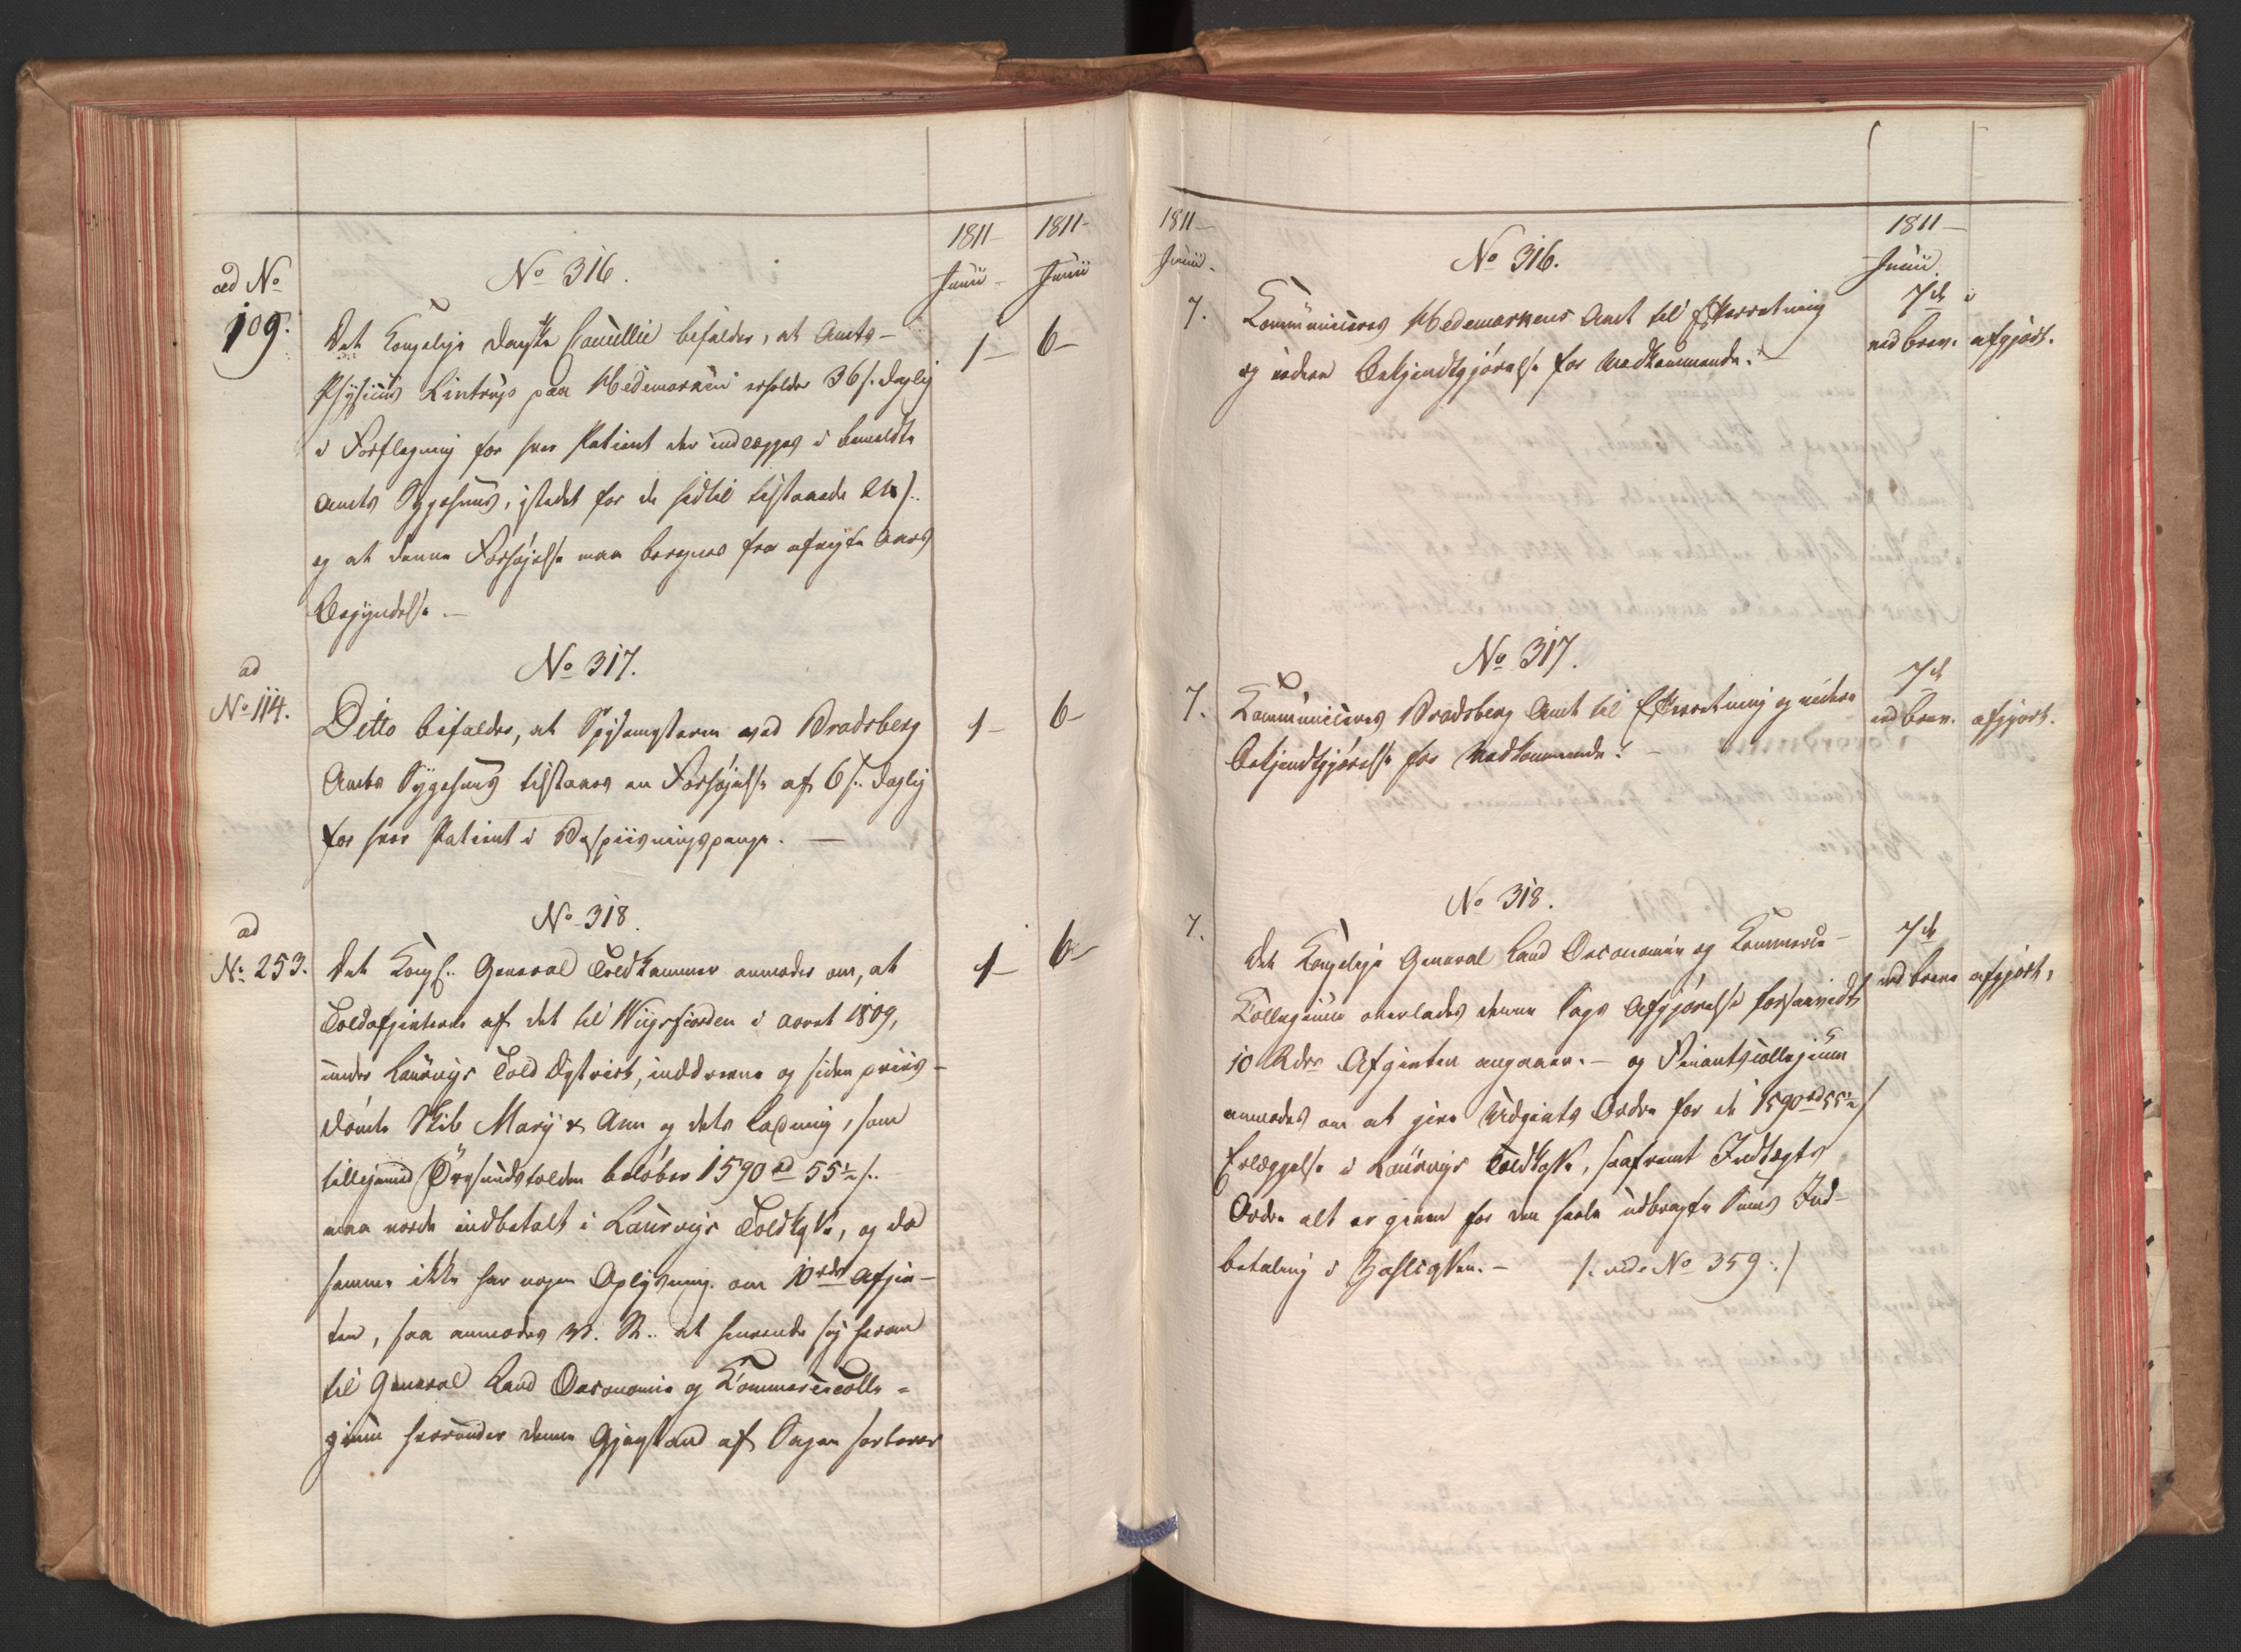 1811 1811
ad No
109.
No 316.
Junii Junii
Det Kongelige danske Cancellie befalder, at Amts-
Physicus Lintrup paa Hedemarken erholder 36 s. daglig
i Forflegning for hver Patient der indlægges i bemeldte
Amts Sygehuus, istedet for de hidtil tilstaaede 24 s.
og at denne Forhøjelse maa beregnes fra afvigte Aars
Begyndelse. —
1 — 6 —
ad
No 114.
No 317.
Ditto bifalder, at Spisemesteren ved Bradsberg
Amts Sygehuus tilstaaes en Forhøjelse af 6 s. daglig
for hver Patient i Bespiisningspenge. —
1 — 6 —
ad
No 253.
No 318.
Det Kongl. General Toldkammer anmoder om, at
Toldafgivterne af det til Wiigsfiorden i Aaret 1809,
under Laurvigs Told District, inddrevne og siden priis-
dømte Skib Mary & Ann og dets Ladning, som
tilligemed Øresundstolden beløber 1590 rd 55½ s.
maa vorde indbetalt i Laurvigs Toldkasse, og da
samme ikke har nogen Oplysning om 10 rdrs Afgiv-
ten, saa anmodes R. at henvende sig herom
til General Land Oeconomie og Kommercecolle-
gium hvorunder denne Gjenstand af Sagen sorterer
1 — 6 —
1811
Junii
No 316.
1811
Junii
7. Kommuniceres Hedemarkens Amt til Efterretning
og videre Bekjendtgjørelse for Vedkommende. —
7de
ved Brev. afgjort.
No 317.
7. Kommuniceres Bradsberg Amt til Efterretning og videre
Bekjendtgjørelse for Vedkommende. —
7de
ved Brev. afgjort.
No 318.
7. Det Kongelige General Land Oeconomie og Kommerce-
Kollegium overlades denne Sags Afgjørelse forsaavidt
10 Rdrs Afgivten angaaer. — og Finantscollegium
anmodes om at give Udgivts Ordre for de 1590 rd 55½ s
Erlæggelse i Laurvigs Toldkasse, saafremt Indtægts
Ordre alt er given for den heele udbragte Sums Ind-
betaling i Zahlkassen. — /: vide No 359 :/
7de
ved Brev afgjort,